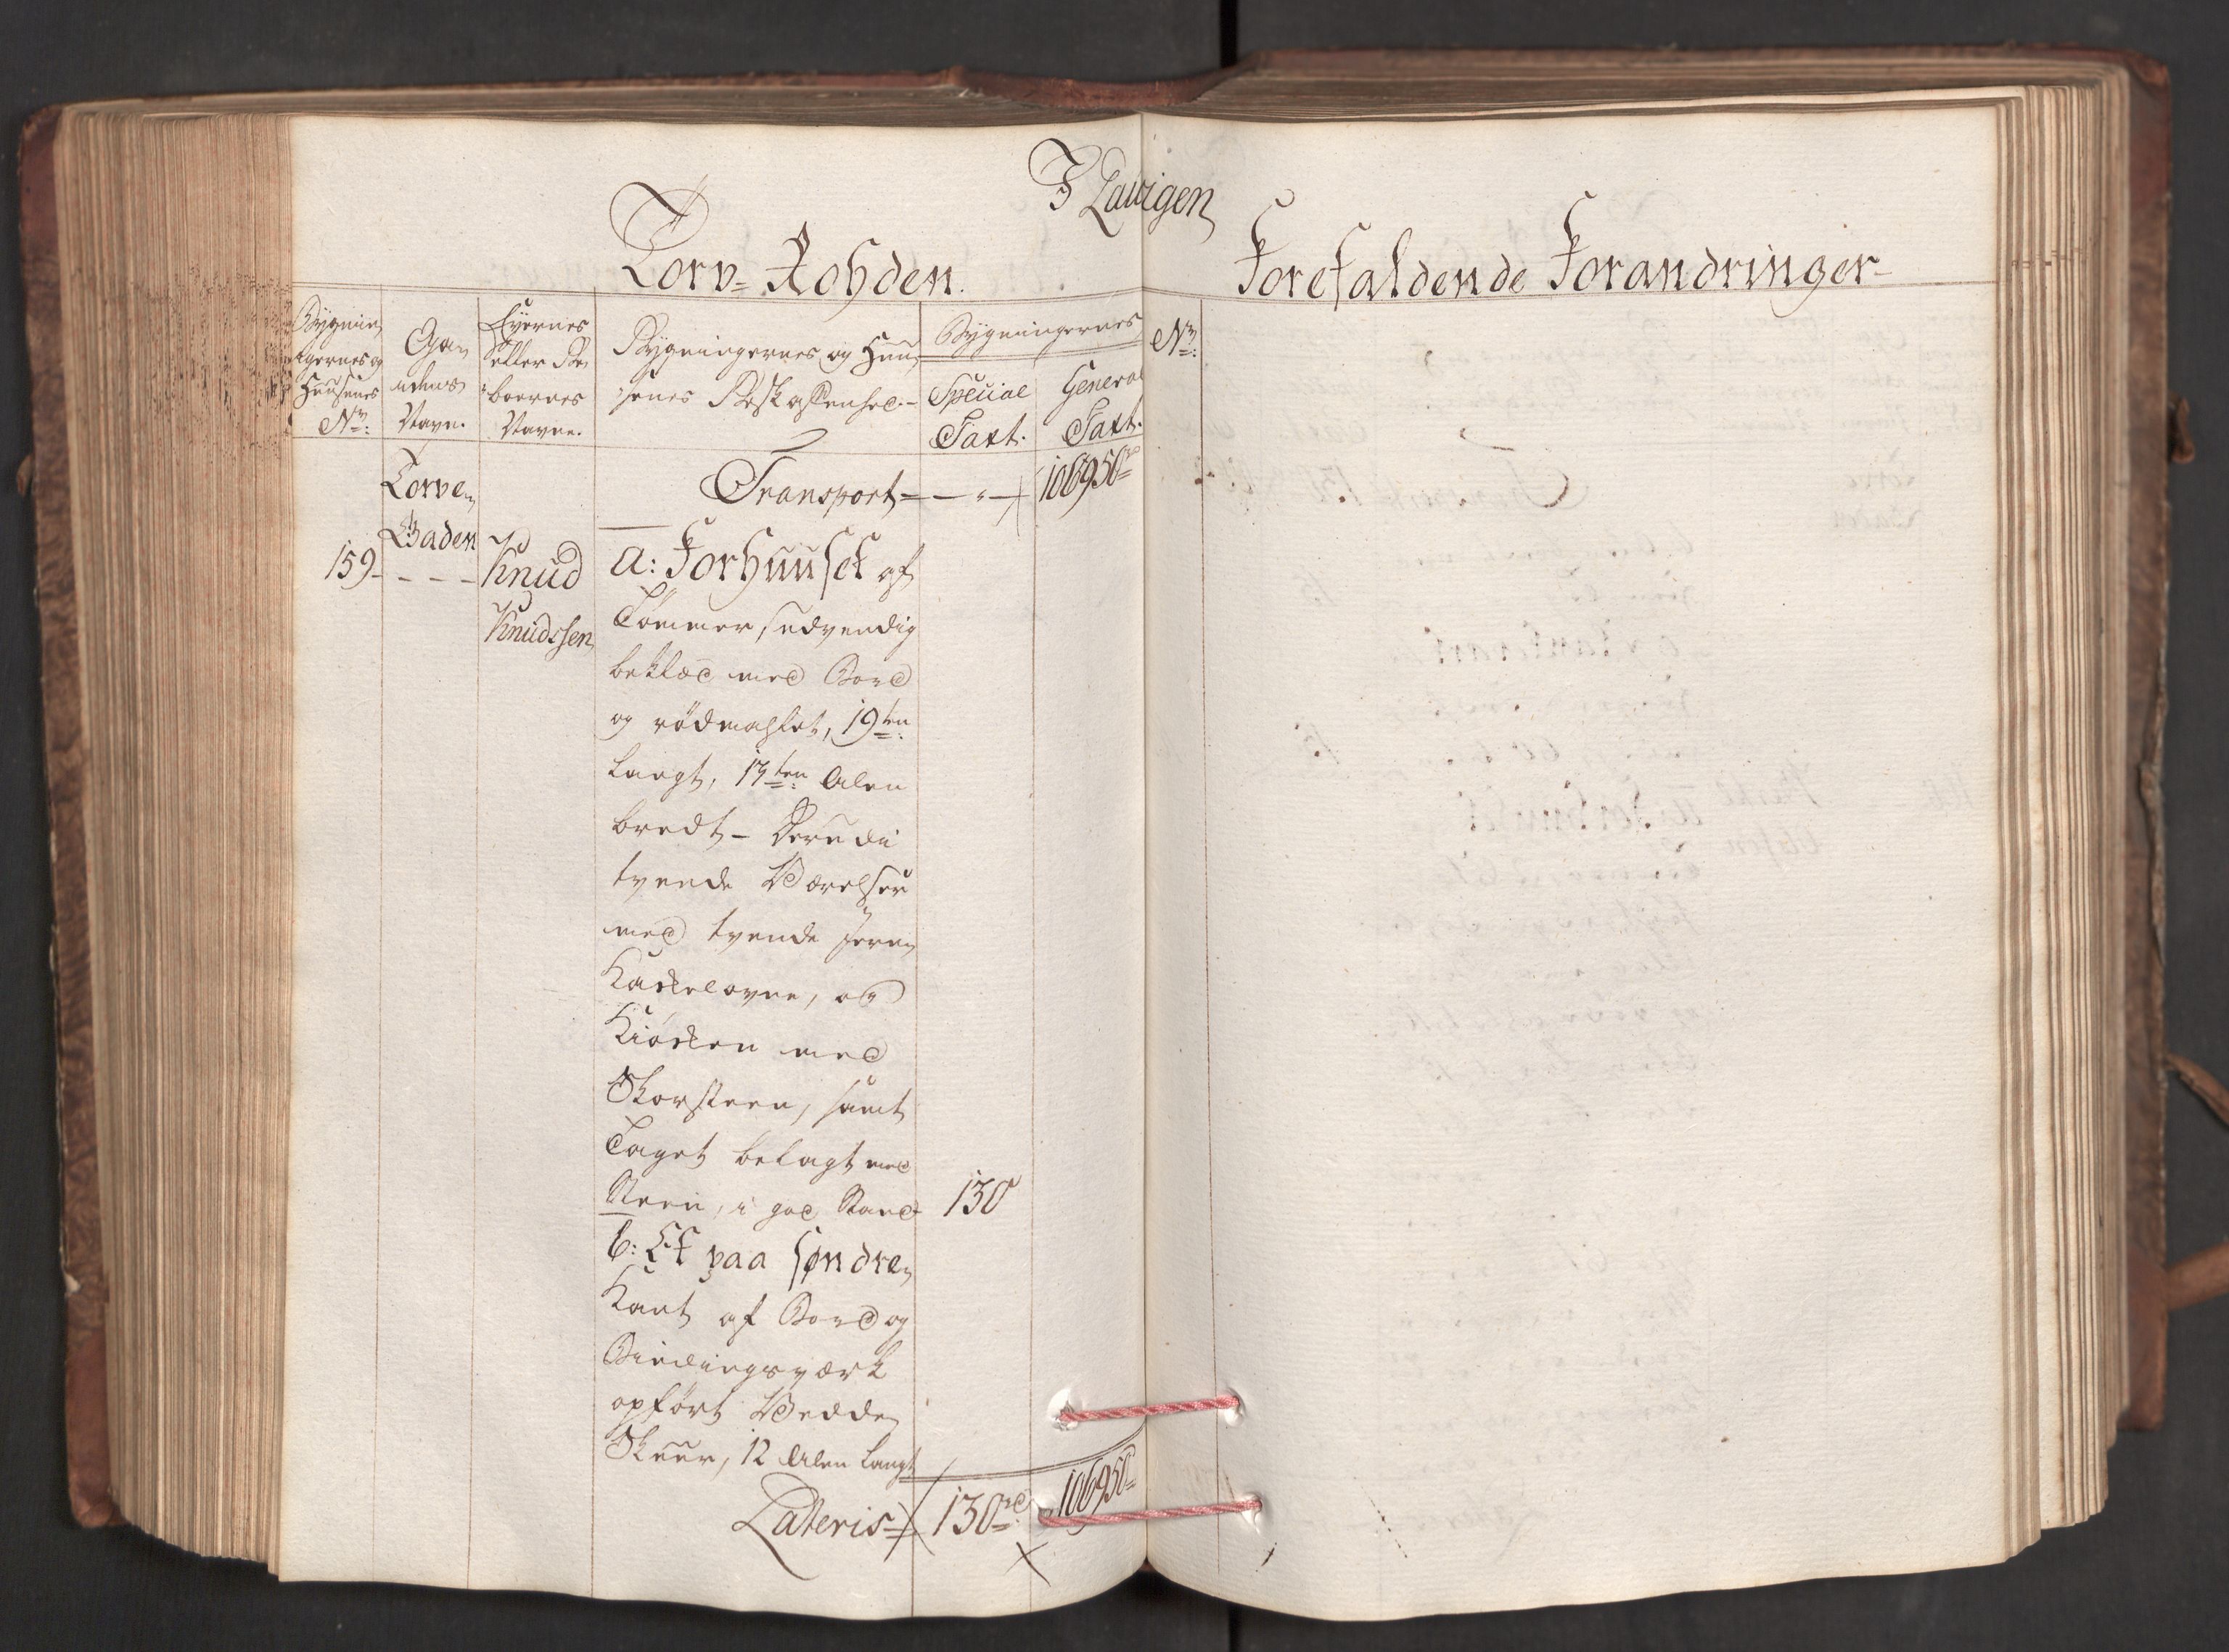 I Laurvigen
Torv-Rohden.
Forefaldende Forandringer
Bygnin
gernes og
Huusenes
No:
Ga-
dens
Navn.
Eyernes
eller Be
boernes
Navne.
Bygningernes og Huu
senes Beskaffenhed.
Bygningernes
Special
Taxt.
General
Taxt.
No:
Torve
Gaden
Transport 106950
159 - - - - Knud
Knudssen
a: Forhuuset af
Tømmer, udvendig
beklæd med Bord
og rødmahlet, 19ten
langt, 13ten Alen
bredt - Derudi
tvende Værelser
med tvende Jern
Kackelovne, og
Kiøcken med
Skorsteen, samt
Taget belagt med
Steen, i god Stand 130
b: Et paa søndre
Kant af Bord og
Bindingsværk
opført Vedde
Skuur, 12 Alen langt
Lateris 130rd 106950